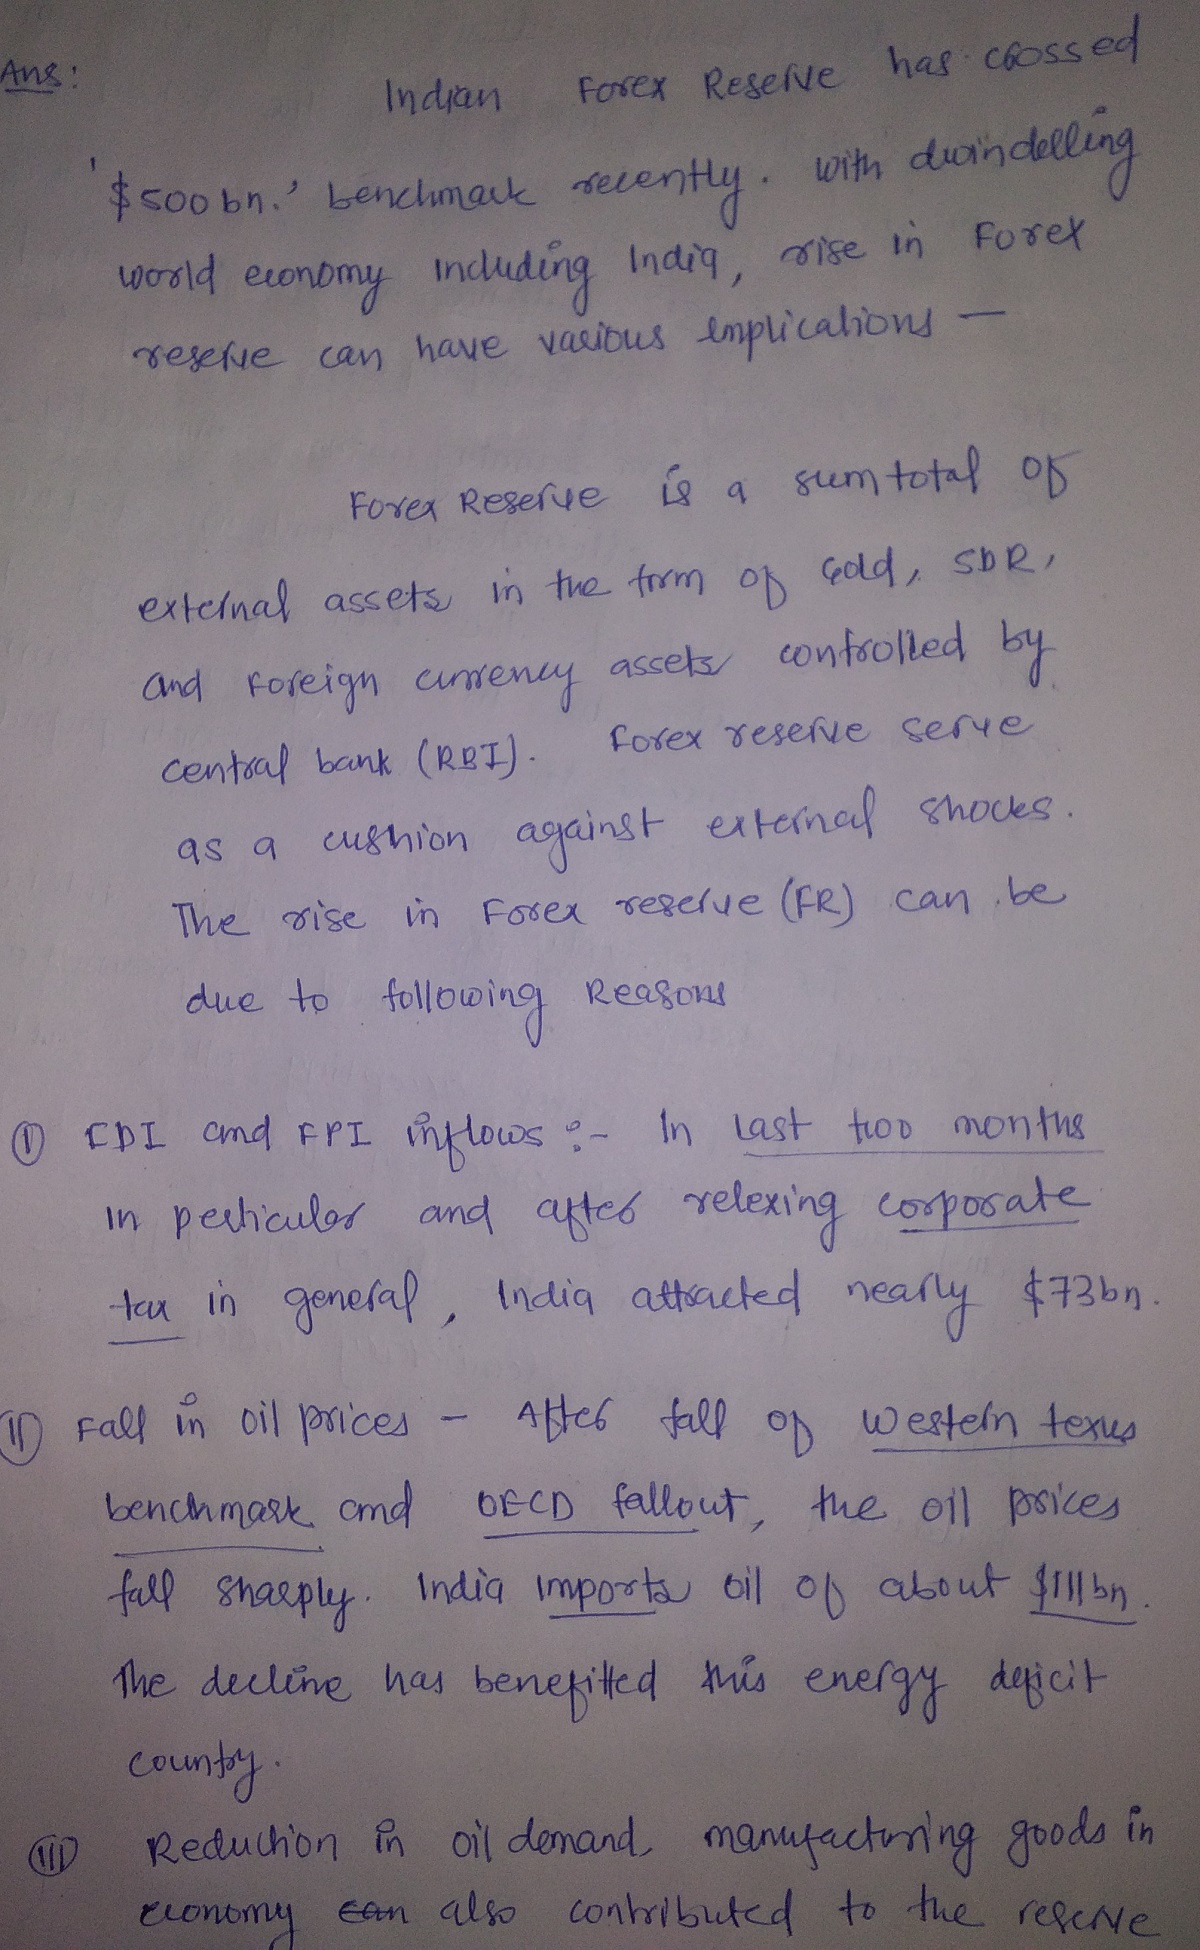 Ans:
Indian Forex Reserve has crossed
'$500bn.' benchmark recently. with dwindelling
world economy including India, rise in Forex
reserve can have various implications —
Forex Reserve is a sumtotal of
external assets in the form of Gold, SDR,
and Foreign currency assets controlled by
central bank (RBI). Forex reserve serve
as a cushion against external shocks.
The rise in Forex reserve (FR) can be
due to following Reasons
(I) FDI and FPI inflows :- In Last two months
in perticular and after relexing corporate
tax in general, India attracted nearly $73bn.
(II) Fall in oil prices - After fall of Western texus
benchmark and OECD fallout, the oil prices
fall sharply. India imports oil of about $111bn.
The decline has benefitted this energy deficit
country.
(III) Reduction in oil demand, manufacturing goods in
economy can also contributed to the reserve